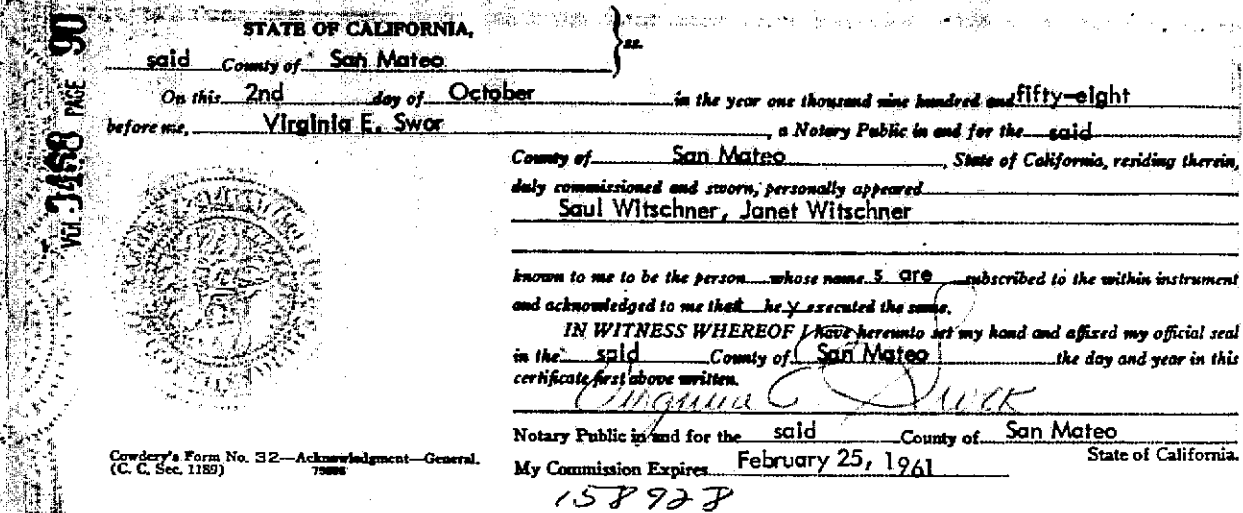 VOL 3468 PAGE 90
STATE OF CALIFORNIA,
ss.
said County of San Mateo
On this 2nd day of October in the year one thousand nine hundred and fifty-eight
before me, Virginia E. Swor , a Notary Public in and for the said
County of San Mateo , State of California, residing therein,
duly commissioned and sworn, personally appeared
Saul Witschner, Janet Witschner
known to me to be the person whose name s are subscribed to the within instrument
and acknowledged to me that he y executed the same.
IN WITNESS WHEREOF I have hereunto set my hand and affixed my official seal
in the said County of San Mateo the day and year in this
certificate first above written.
Virginia E Swor
Notary Public in and for the said County of San Mateo
State of California.
Cowdery's Form No. 32—Acknowledgment—General.
(C. C. Sec. 1189)
My Commission Expires February 25, 1961
158928